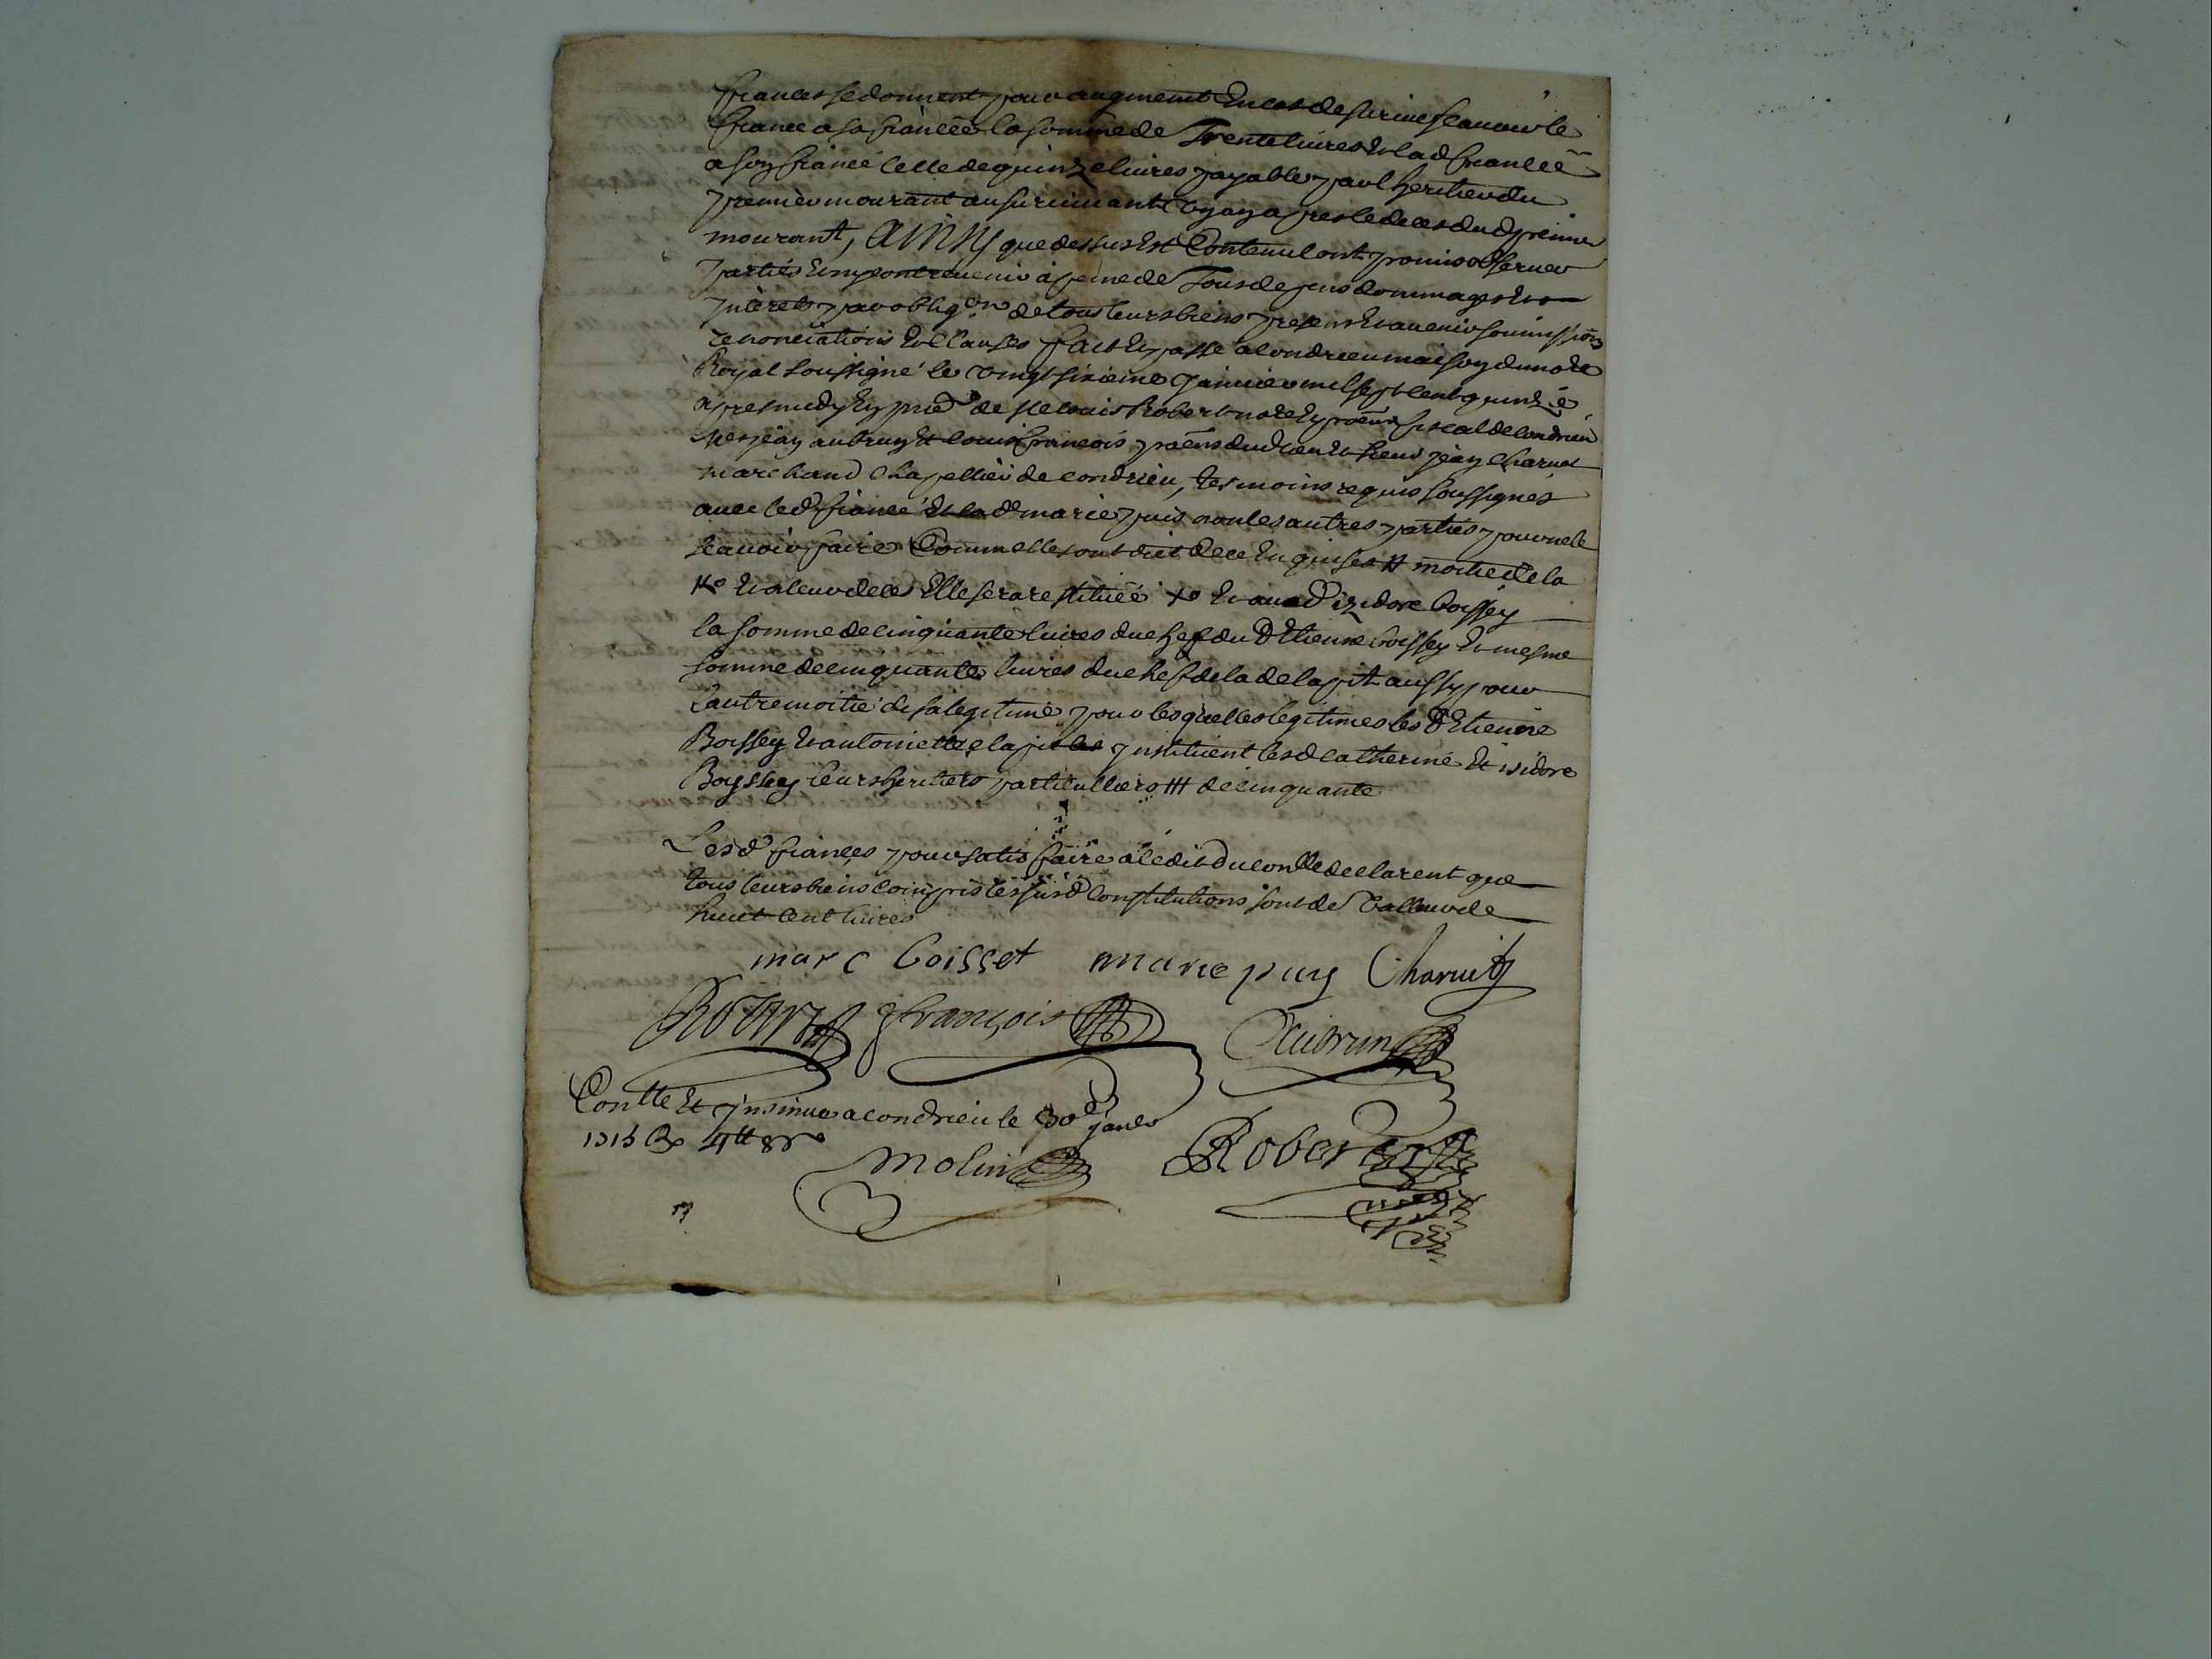 fiances se donnent pour augment en cas de survie scauoir le
fiance a sa fiancée la somme de Trente liures et lad fiancée
a son fiancé celle de quinze liures payable par l heritier du
premier mourant au suruiuant un an apres le deces dud premier
mourant, AINSY que dessus est Contenu l ont promis obseruer
parties et ny contreuenir à peine de Tous depens dommages et
interets par obligon de tous leurs biens presens et auenir soumissions
renonciations et clauses fait et passé a Condrieu maison du nore
Royal soussigné le vingt sixieme januier mil sept cent quinze
apres midy en pnce de Me Louis Robert nore et procur fiscal de Condrieu
Mes jean aubrun et Louis francois pratns dud lieu et sieur jean Charuet
marchand chapellier de condrieu, tesmoins requis soussignés
auec led fiancé et lad marie puis non les autres parties pour ne le
scauoir faire Comme elles ont dict de ce enquises # moitié de la
valeur de ce Elle sera restituée et aud izidore Boissey
la somme de cinquante liures du chef du d Etienne Boissey et mesme
somme de cinquante liures du chef de lad delapit aussy pour
l autre moitié de sa legitime pour lesquelles legitimes les d Etienne
Boissey et antoinette delapit instituent lesd catherine et isidore
Boyssey leurs heritiers particulliers ### de cinquante
Lesd fiances pour satisfaire a l edit du conlle declarent que
tous leurs biens compris les susd Constitutions sont de valleur de
huict cent liures
marc Boisset marie puy Charuet
Robert francois Aubrun
Conlle et insinue a condrieu le 30e janer
1715 R 4tt 8s
Molin Robert